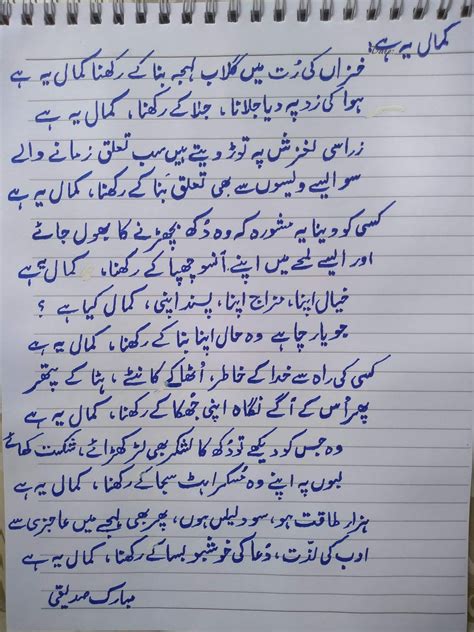 کمال یہ ہے!
خزاں کی رُت میں گلاب لہجہ بنا کے رکھنا کمال یہ ہے
ہوا کی زد پہ دیا جلانا، جلا کے رکھنا، کمال یہ ہے
ذرا سی لغزش پہ توڑ دیتے ہیں سب تعلق زمانے والے
سو ایسے ویسوں سے بھی تعلق بنا کے رکھنا، کمال یہ ہے
کسی کو دینا یہ مشورہ کہ وہ دُکھ بچھڑنے کا بھول جائے
اور ایسے لمحے میں اپنے آنسو چھپا کے رکھنا، کمال یہ ہے
خیال اپنا، مزاج اپنا، پسند اپنی، کمال کیا ہے ؟
جو یار چاہے وہ حال اپنا بنا کے رکھنا، کمال یہ ہے
کسی کی راہ سے خدا کے خاطر، اُٹھا کے کانٹے، ہٹا کے پتھر
پھر اُس کے آگے نگاہ اپنی جُھکا کے رکھنا، کمال یہ ہے
وہ جس کو دیکھے تو دُکھ کا لشکر بھی لڑکھڑائے، شکست کھائے
لبوں پہ اپنے وہ مُسکراہٹ سجا کے رکھنا، کمال یہ ہے
ہزار طاقت ہو، سو دلیلیں ہوں، پھر بھی لہجے میں عاجزی سے
ادب کی لذّت، دُعا کی خوشبو بسا کے رکھنا، کمال یہ ہے
مبارک صدیقی